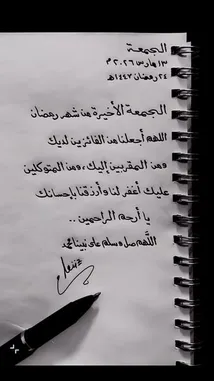 الجمعـة
١٣ مارس ٢٠٢٦ م
٢٤ رمضان ١٤٤٧هـ
الجمعة الأخيرة من شهر رمضان
اللهم أجعلنا من الفائزين لديك
ومن المقربين إليك، ومن المتوكلين
عليك أغفر لنا وأرزقنا بإحسانك
يا أرحم الراحمين ..
اللهم صل وسلم على نبينا محمد